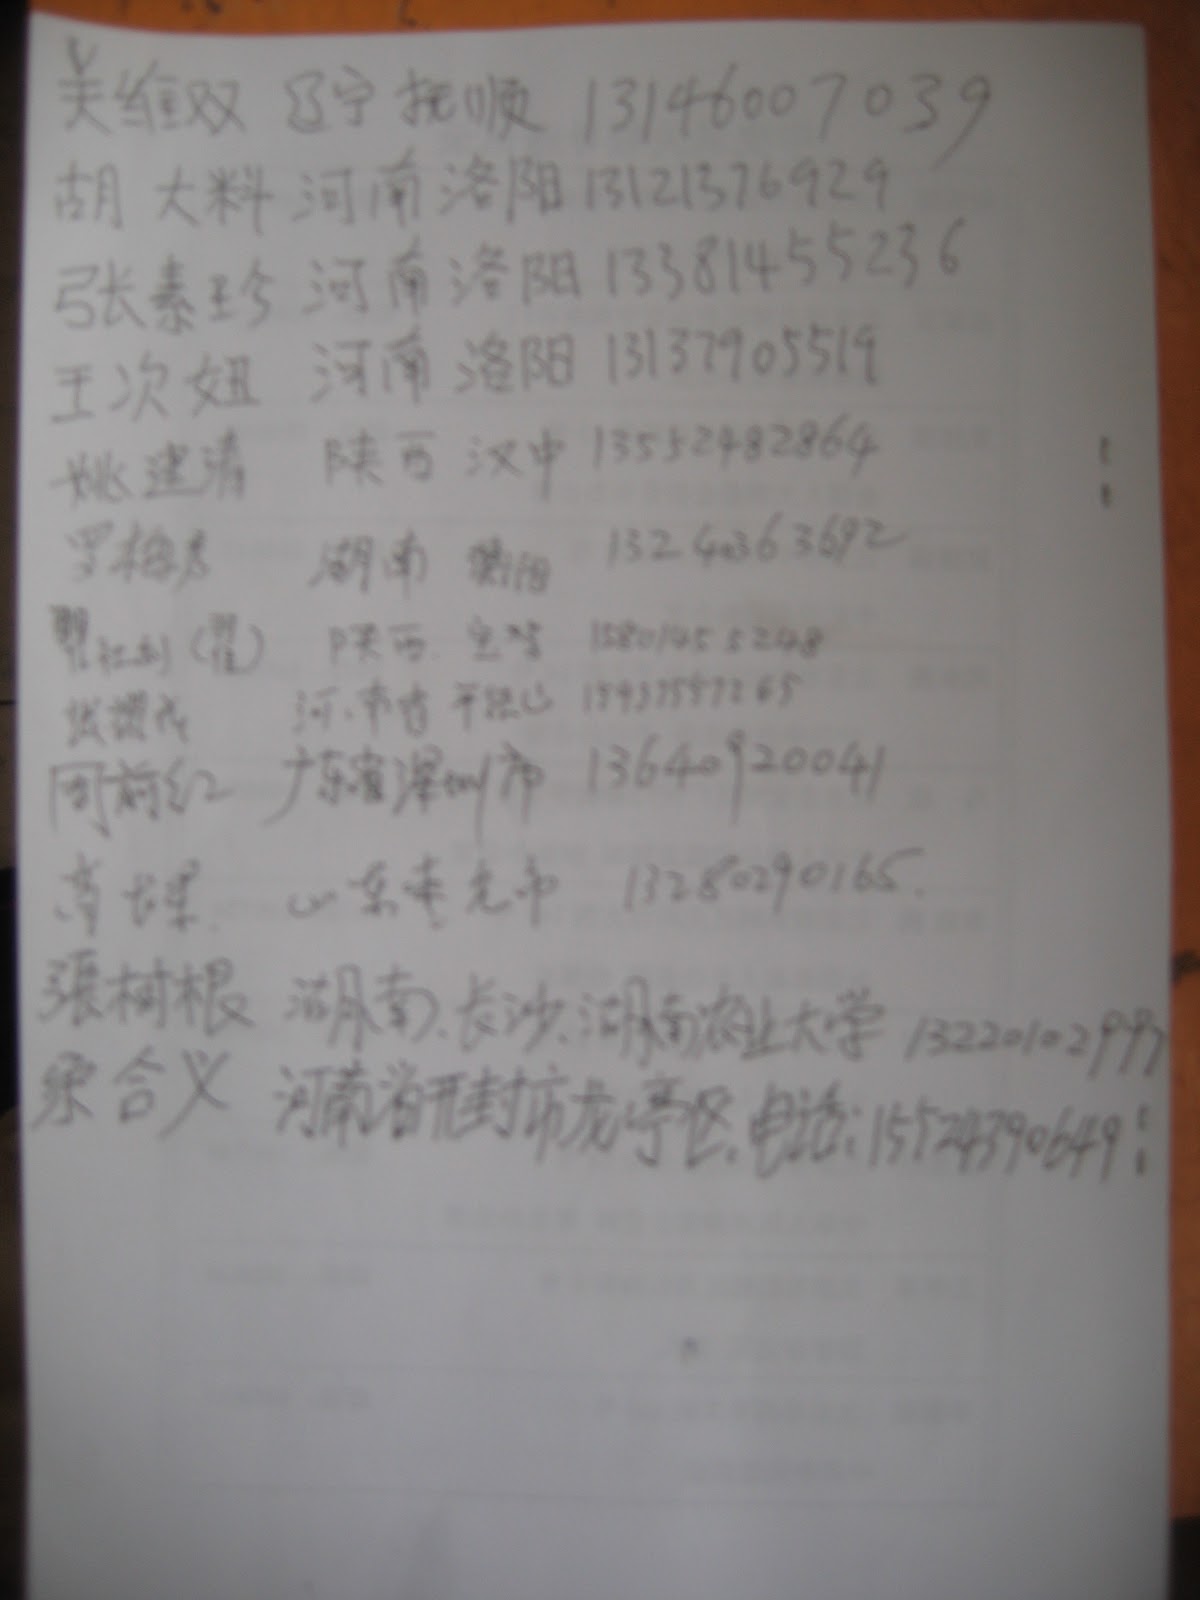 关维双 辽宁 抚顺 13146007039
胡大料 河南洛阳 13121376929
张素珍 河南洛阳 13381455236
王次妞 河南洛阳 13137905519
姚建清 陕西 汉中 13552482864
罗梅 湖南 衡阳 13240363692
(翟) 陕西 宝鸡 15801455248
张 河南省 平顶山
周前红 广东省深圳市 13640920041
山东寿光市 13280290165.
張树根 湖南、长沙、湖南农业大学
合义 河南省开封市龙亭区、电话：15524390649